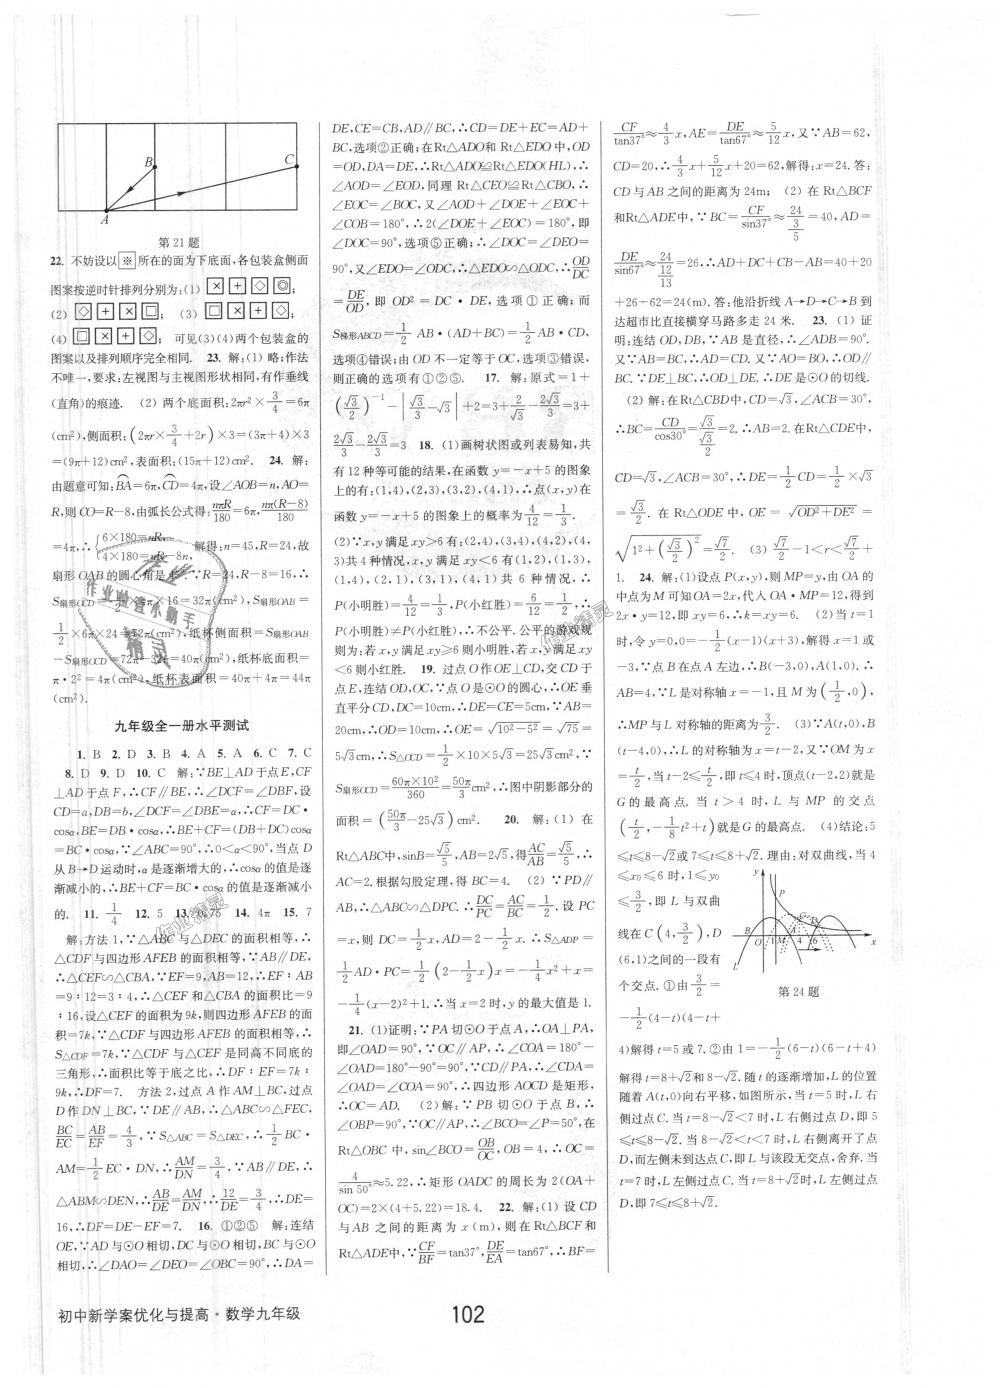 B
C
A
第21题
22. 不妨设以※所在的面为下底面,各包装盒侧面
图案按逆时针排列分别为:(1) ☒ + ◇ ◎;
(2) ◇ + ☒ □; (3) □ ☒ ◇ +;
(4) □ ☒ ◇ + 可见(3)(4)两个包装盒的
图案以及排列顺序完全相同. 23. 解:(1) 略;作法
不唯一,要求:左视图与主视图形状相同,有作垂线
(直角)的痕迹. (2) 两个底面积:2πr²×3/4=6π
(cm²),侧面积:(2πr×3/4+2r)×3=(3π+4)×3
=(9π+12)cm²,表面积:(15π+12)cm². 24. 解:
由题意可知:BA=6π,CD=4π,设∠AOB=n,AO=
R,则CO=R-8,由弧长公式得:nπR/180=6π,nπ(R-8)/180
=4π,∴{6×180=nR, 4×180=nR-8n, 解得:n=45,R=24,故
扇形OAB的圆心角是45°∵R=24,R-8=16,∴
S扇形OCD=1/2×4π×16=32π(cm²),S扇形OAB=
1/2×6π×24=72π(cm²),纸杯侧面积=S扇形OAB
-S扇形OCD=72π-32π=40π(cm²),纸杯底面积=
π·2²=4π(cm²),纸杯表面积=40π+4π=44π
(cm²).
九年级全一册水平测试
1. B 2. D 3. B 4. A 5. A 6. C 7. C
8. D 9. D 10. C 解:∵BE⊥AD于点E,CF
⊥AD于点F,∴CF∥BE,∴∠DCF=∠DBF,设
CD=a,DB=b,∠DCF=∠DBE=α,∴CF=DC·
cosα,BE=DB·cosα,∴BE+CF=(DB+DC)cosα
=BC·cosα,∵∠ABC=90°,∴0<α<90°,当点D
从B→D运动时,α是逐渐增大的,∴cosα的值是逐
渐减小的,∴BE+CF=BC·cosα的值是逐渐减小
的. 11. 1/4 12. 5 13. 6.75 14. 4π 15. 7
解:方法1,∵△ABC与△DEC的面积相等,∴
△CDF与四边形AFEB的面积相等,∵AB∥DE,
∴△CEF∽△CBA,∵EF=9,AB=12,∴EF∶AB
=9∶12=3∶4,∴△CEF和△CBA的面积比=9
∶16,设△CEF的面积为9k,则四边形AFEB的面
积=7k,∵△CDF与四边形AFEB的面积相等,∴
S△CDF=7k,∵△CDF与△CEF是同高不同底的
三角形,∴面积比等于底之比,∴DF∶EF=7k∶
9k,∴DF=7. 方法2,过点A作AM⊥BC,过点
D作DN⊥BC,∵DE∥AB,∴△ABC∽△FEC,
BC/EC=AB/EF=4/3,∵S△ABC=S△DEC,∴1/2BC·
AM=1/2EC·DN,∴AM/DN=3/4,∵AB∥DE,∴
△ABM∽DEN,∴AB/DE=AM/DN,∴12/DE=3/4,∴DE=
16,∴DF=DE-EF=7. 16. ①②⑤ 解:连结
OE,∵AD与⊙O相切,DC与⊙O相切,BC与⊙O
相切,∴∠DAO=∠DEO=∠OBC=90°,∴DA=
DE,CE=CB,AD∥BC,∴CD=DE+EC=AD+
BC,选项②正确;在Rt△ADO和Rt△EDO中,OD
=OD,DA=DE,∴Rt△ADO≌Rt△EDO(HL),∴
∠AOD=∠EOD,同理Rt△CEO≌Rt△CBO,∴
∠EOC=∠BOC,又∠AOD+∠DOE+∠EOC+
∠COB=180°,∴2(∠DOE+∠EOC)=180°,即
∠DOC=90°,选项⑤正确;∴∠DOC=∠DEO=
90°,又∠EDO=∠ODC,∴△EDO∽△ODC,∴OD/DC
=DE/OD,即OD²=DC·DE,选项①正确;而
S梯形ABCD=1/2AB·(AD+BC)=1/2AB·CD,
选项④错误;由OD不一定等于OC,选项③错误,
则正确的选项有①②⑤. 17. 解:原式=1+
(√3/2)⁻¹-|√3/3-√3|+2=3+2/√3-2√3/3=3+
2√3/3-2√3/3=3 18. (1)画树状图或列表易知,共
有12种等可能的结果,在函数y=-x+5的图象
上的有:(1,4),(2,3),(3,2),(4,1),∴点(x,y)在
函数y=-x+5的图象上的概率为4/12=1/3.
(2)∵x,y满足xy>6有:(2,4),(3,4),(4,2),(4,
3)共4种情况,x,y满足xy<6有(1,2),(1,3),
(1,4),(2,1),(3,1),(4,1)共6种情况,∴
P(小明胜)=4/12=1/3,P(小红胜)=6/12=1/2,∴
P(小明胜)≠P(小红胜),∴不公平.公平的游戏规
则为:若x,y满足xy≥6则小明胜,若x,y满足xy
<6则小红胜. 19. 过点O作OE⊥CD,交CD于
点E,连结OD,OC,∵点O是⊙O的圆心,∴OE垂
直平分CD,DC=10cm,∴DE=CE=5cm,∵AB=
20cm,∴OD=10cm,∴OE=√(10²-5²)=√75=
5√3cm,∴S△OCD=1/2×10×5√3=25√3cm.∵
S扇形OCD=60π×10²/360=50π/3cm²,∴图中阴影部分的
面积=(50π/3-25√3)cm². 20. 解:(1)在
Rt△ABC中,sinB=√5/5,AB=2√5,得AC/AB=√5/5,∴
AC=2.根据勾股定理,得BC=4. (2)∵PD∥
AB,∴△ABC∽△DPC.∴DC/PC=AC/BC=1/2.设PC
=x,则DC=1/2x,AD=2-1/2x.∴S△ADP=
1/2AD·PC=1/2(2-1/2x)x=-1/4x²+x=
-1/4(x-2)²+1.∴当x=2时,y的最大值是1.
21. (1)证明:∵PA切⊙O于点A,∴OA⊥PA,
即∠OAD=90°,∵OC∥AP,∴∠COA=180°-
∠OAD=180°-90°=90°.∵CD∥PA,∴∠CDA=
∠OAD=∠COA=90°,∴四边形AOCD是矩形,
∴OC=AD. (2)解:∵PB切⊙O于点B,∴
∠OBP=90°,∵OC∥AP,∴∠BCO=∠P=50°,在
Rt△OBC中,sin∠BCO=OB/OC,OB=4,∴OC=
4/sin50°≈5.22,∴矩形OADC的周长为2(OA+
OC)=2×(4+5.22)=18.4. 22. 解:(1)设CD
与AB之间的距离为x(m),则在Rt△BCF和
Rt△ADE中,∵CF/BF=tan37°,DE/EA=tan67°,∴BF=
CF/tan37°≈4/3x,AE=DE/tan67°≈5/12x,又∵AB=62,
CD=20,∴4/3x+5/12x+20=62,解得:x=24.答:
CD与AB之间的距离为24m; (2)在Rt△BCF
和Rt△ADE中,∵BC=CF/sin37°≈24/(3/5)=40,AD=
DE/sin67°≈24/(12/13)=26.∴AD+DC+CB-AB=40+20
+26-62=24(m).答:他沿折线A→D→C→B到
达超市比直接横穿马路多走24米. 23. (1)证
明:连结OD,DB,∵AB是直径,∴∠ADB=90°.
又∵AB=BC,∴AD=CD.又∵AO=BO,∴OD∥
BC.∵DE⊥BC,∴OD⊥DE.∴DE是⊙O的切线.
(2)解:在Rt△CBD中,CD=√3,∠ACB=30°,
∴BC=CD/cos30°=√3/(√3/2)=2.∴AB=2.在Rt△CDE中,
CD=√3,∠ACB=30°,∴DE=1/2CD=1/2×√3
=√3/2.在Rt△ODE中,OE=√(OD²+DE²)=
√(1²+(√3/2)²)=√7/2. (3)√7/2-1<r<√7/2+
1. 24. 解:(1)设点P(x,y),则MP=y,由OA的
中点为M可知OA=2x,代人OA·MP=12,得到
2x·y=12,即xy=6,∴k=xy=6. (2)当t=1
时,令y=0,0=-1/2(x-1)(x+3),解得x=1或
-3,∵点B在点A左边,∴B(-3,0),A(1,0).∴
AB=4,∵L是对称轴x=-1,且M为(1/2,0),
∴MP与L对称轴的距离为3/2. (3)∵A(t,0),B
(t-4,0),∴L的对称轴为x=t-2,又∵OM为x
=t/2,当t-2≤t/2,即t≤4时,顶点(t-2,2)就是
G的最高点.当t>4时,L与MP的交点
(t/2,-1/8t²+t)就是G的最高点. (4)结论:5
≤t≤8-√2或7≤t≤8+√2.理由:对双曲线,当4
≤x₀≤6时,1≤y₀
≤3/2,即L与双曲
线在C(4,3/2),D
(6,1)之间的一段有
个交点.①由3/2=
-1/2(4-t)(4-t+
y
P
C
D
B
O
1
M
A
4
6
x
L
第24题
4)解得t=5或7.②由1=-1/2(6-t)(6-t+4)
解得t=8+√2和8-√2.随t的逐渐增加,L的位置
随着A(t,0)向右平移,如图所示.当t=5时,L右
侧过点C.当t=8-√2<7时,L右侧过点D,即5
≤t≤8-√2.当8-√2<t<7时,L右侧离开了点
D,而左侧未到达点C,即L与该段无交点,舍弃.当
t=7时,L左侧过点C.当t=8+√2时,L左侧过点
D,即7≤t≤8+√2.
初中新学案优化与提高·数学九年级
102